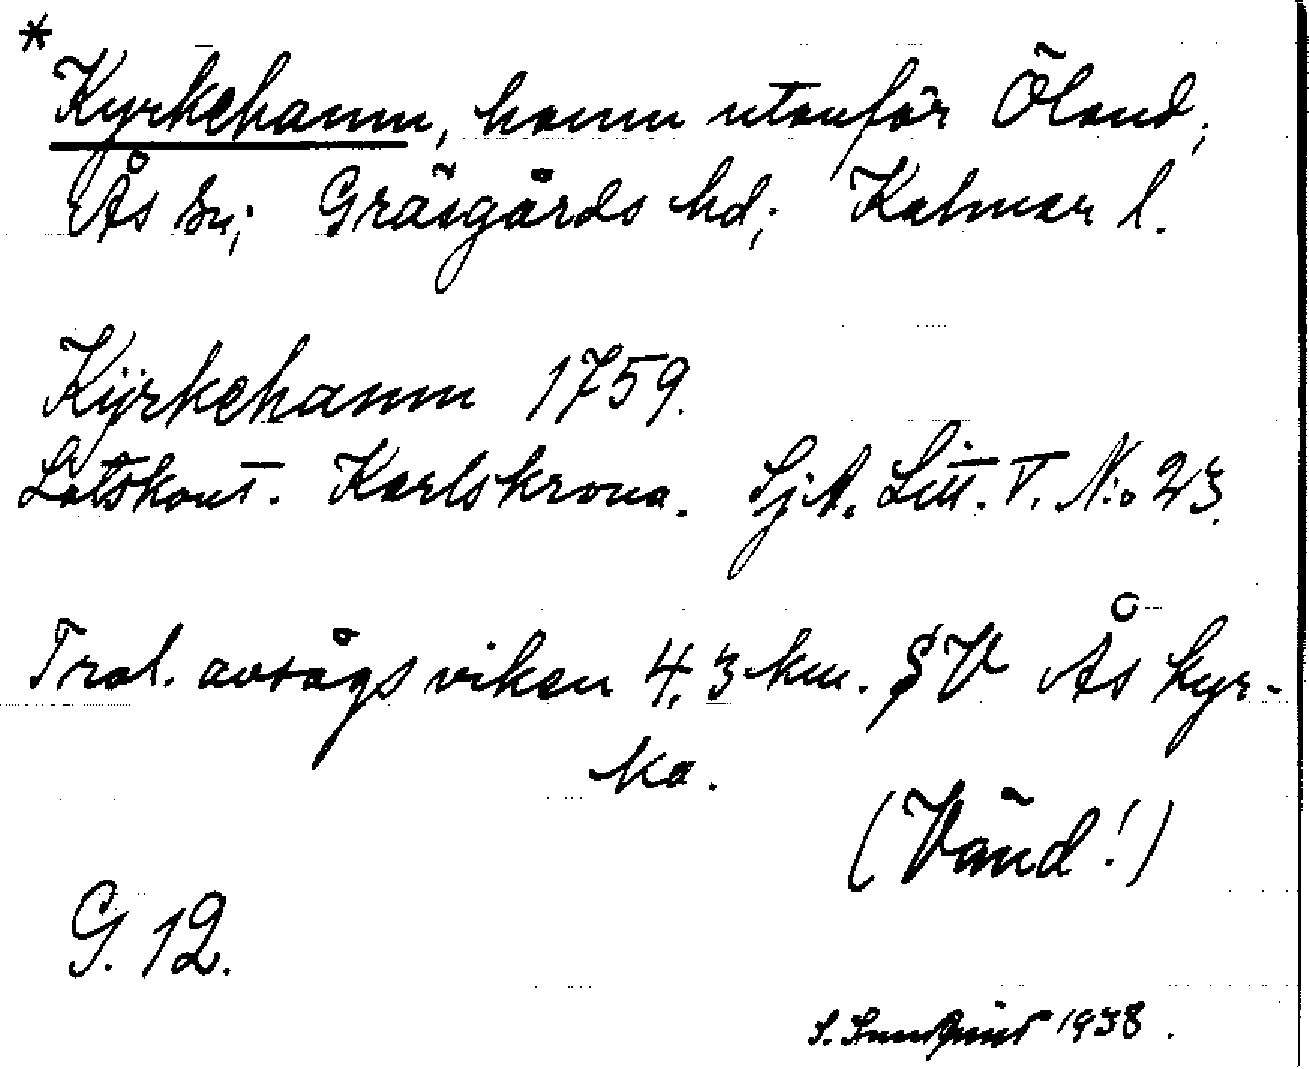 *
Kyrkehamn, hamn utanför Öland,
Ås sn; Gräsgårds hd; Kalmar l.
Kÿrkehamn 1759.
Lotskont. Karlskrona. SjA. Litt. T. N:o 23.
Trol. avsågs viken 4,3 km. SV Ås kyr-
ka.
(Vänd!)
G. 12.
S. Sundqvist 1938.